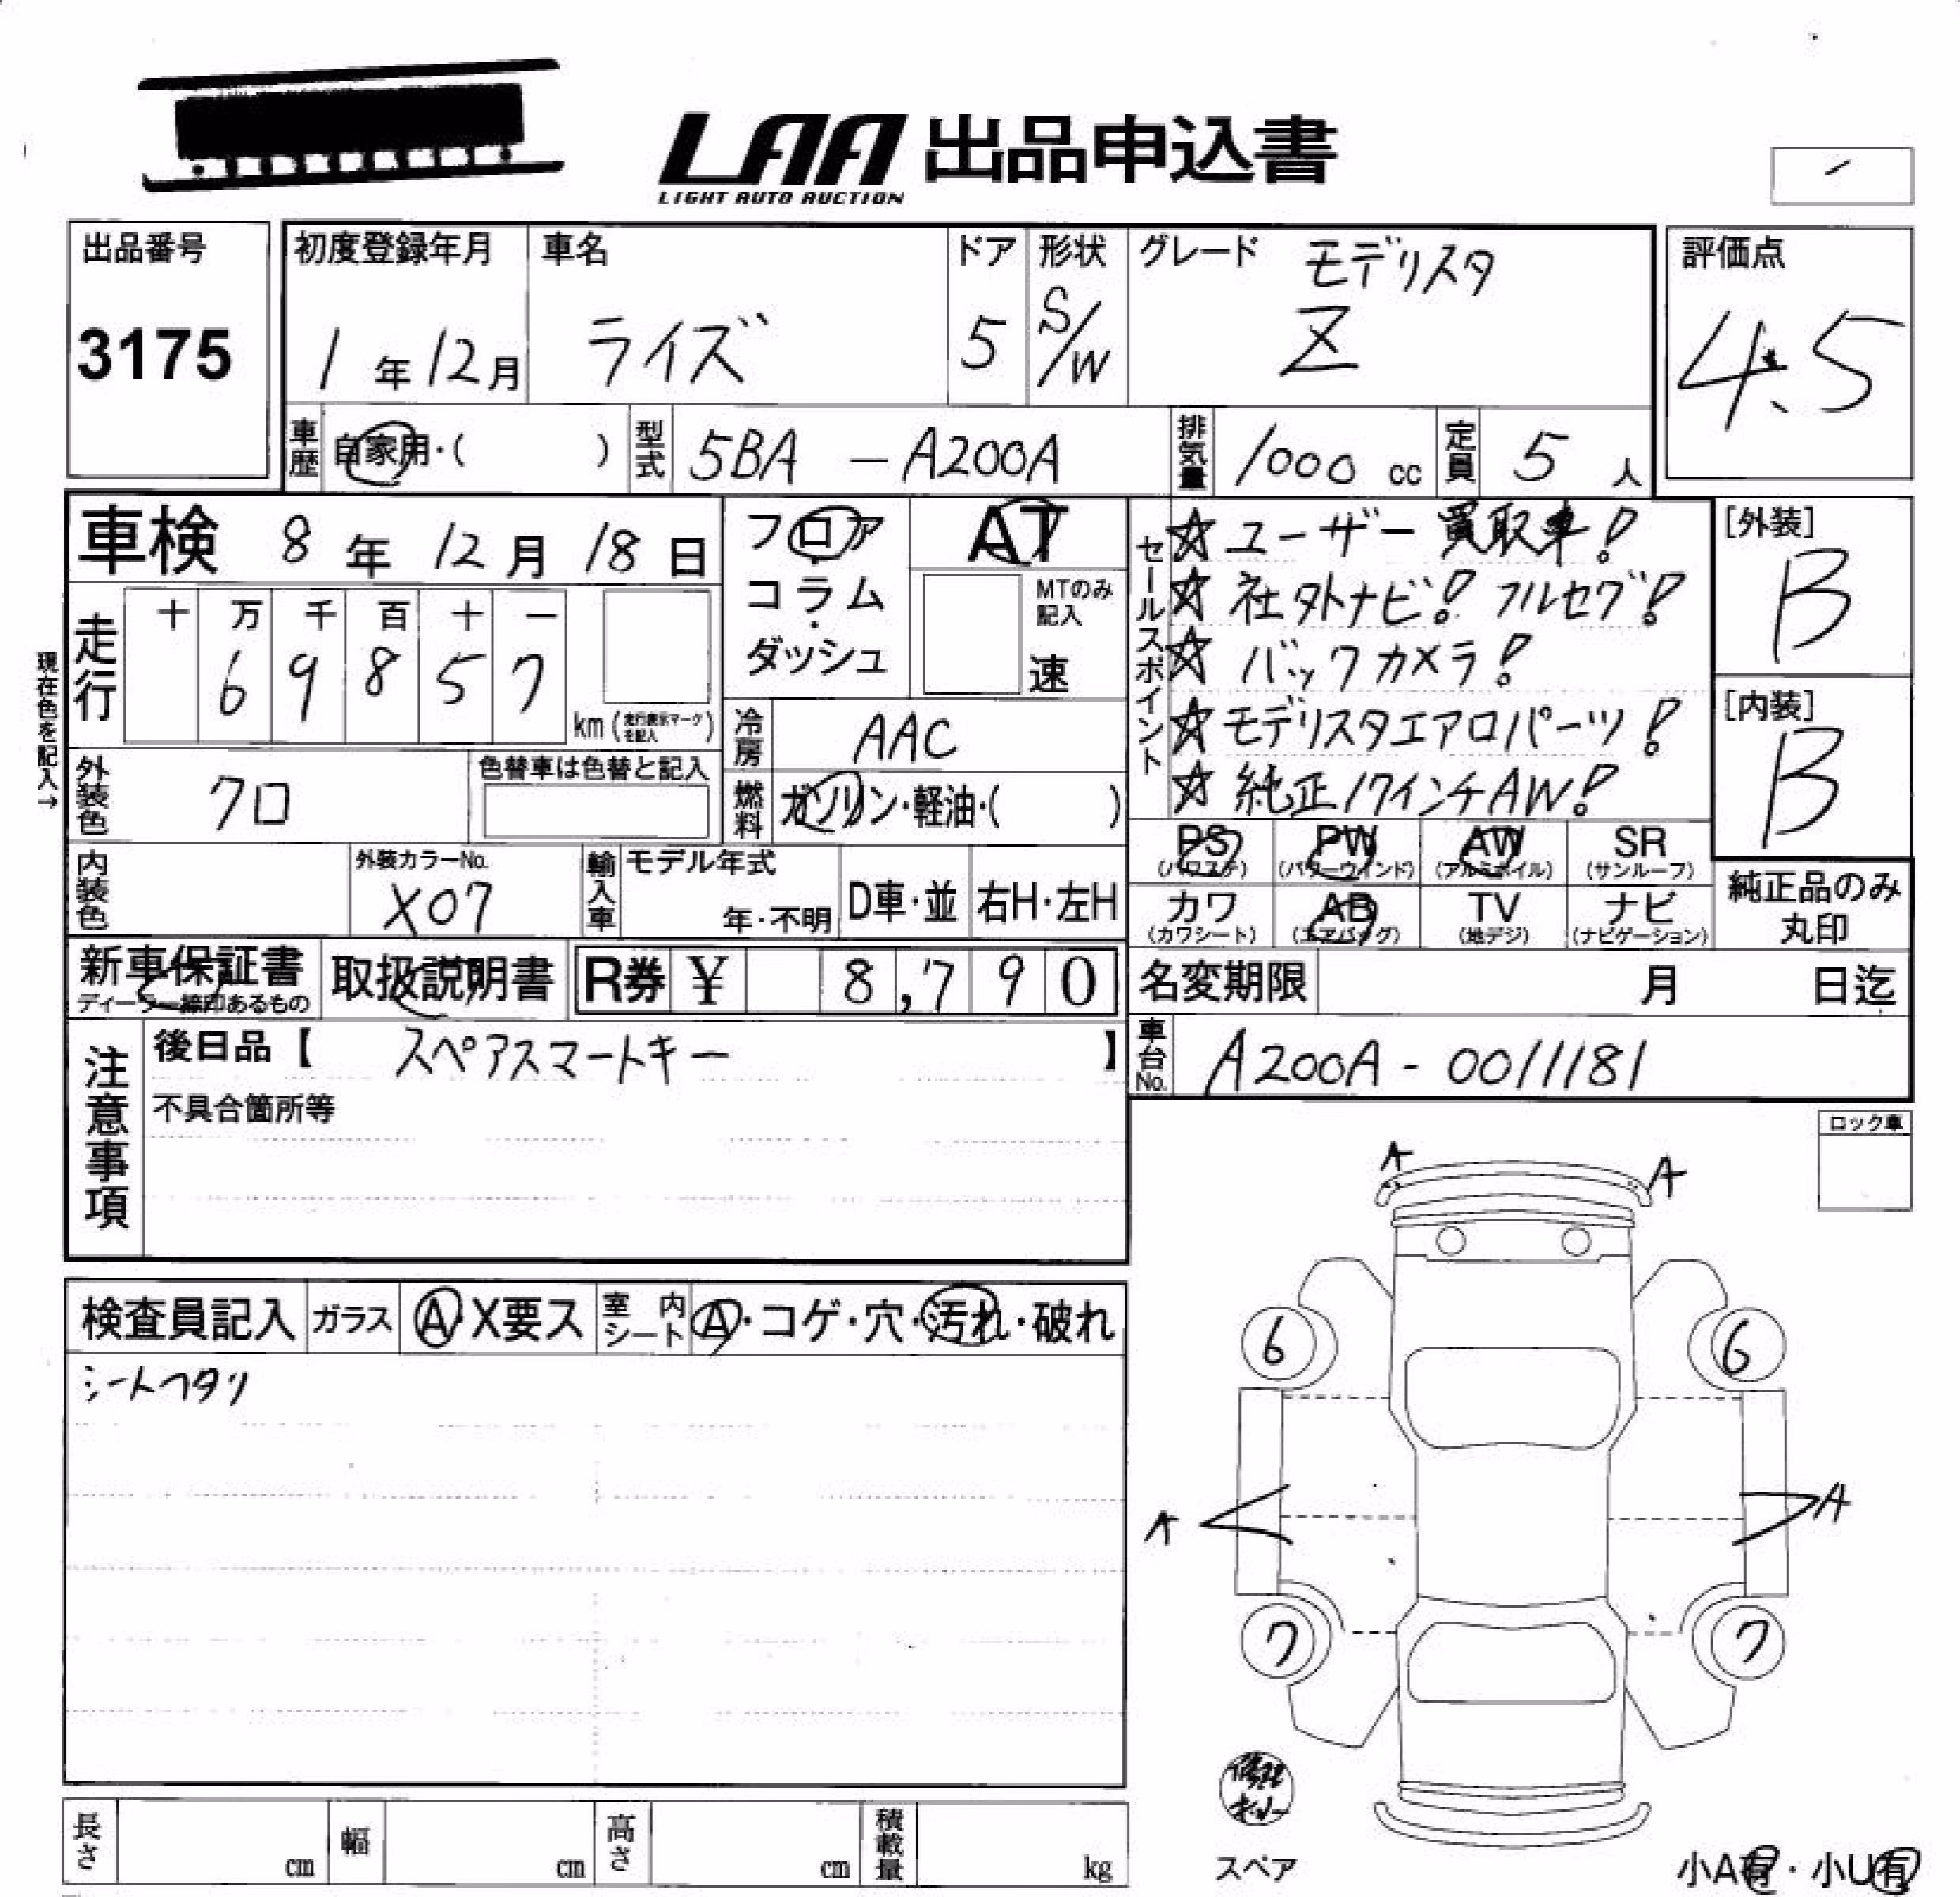 LAA 出品申込書
LIGHT AUTO AUCTION
出品番号
3175
初度登録年月
1年12月
車名
ライズ
ドア
5
形状
S/W
グレード
モデリスタ
Z
評価点
4.5
車歴
自家用・( )
型式
5BA - A200A
排気量
1000 cc
定員
5 人
車検 8年 12月 18日
フロア
コラム
・
ダッシュ
AT
MTのみ
記入
速
セールスポイント
☆ユーザー買取車!
☆社外ナビ! フルセグ!
☆バックカメラ!
☆モデリスタエアロパーツ!
☆純正17インチAW!
[外装]
B
[内装]
B
現在色を記入→
走行
十 万 千 百 十 一
6 9 8 5 7
km(走行表示マークを記入)
冷房
AAC
外装色
クロ
色替車は色替と記入
燃料
ガソリン・軽油・( )
内装色
外装カラーNo.
X07
輸入車
モデル年式
年・不明
D車・並
右H・左H
PS
(パワステ)
PW
(パワーウィンド)
AW
(アルミホイル)
SR
(サンルーフ)
カワ
(カワシート)
AB
(エアバッグ)
TV
(地デジ)
ナビ
(ナビゲーション)
純正品のみ
丸印
新車保証書
ディーラー締印あるもの
取扱説明書
R券 ¥ 8,790
名変期限 月 日迄
注意事項
後日品【 スペアスマートキー 】
不具合箇所等
車台No.
A200A - 0011181
ロック車
A A
検査員記入
ガラス
A・X要ス
室内シート
A・コゲ・穴・汚れ・破れ
シートヘタリ
6 6
A A
7 7
スペア
小A有・小U有
長さ cm
幅 cm
高さ cm
積載量 kg